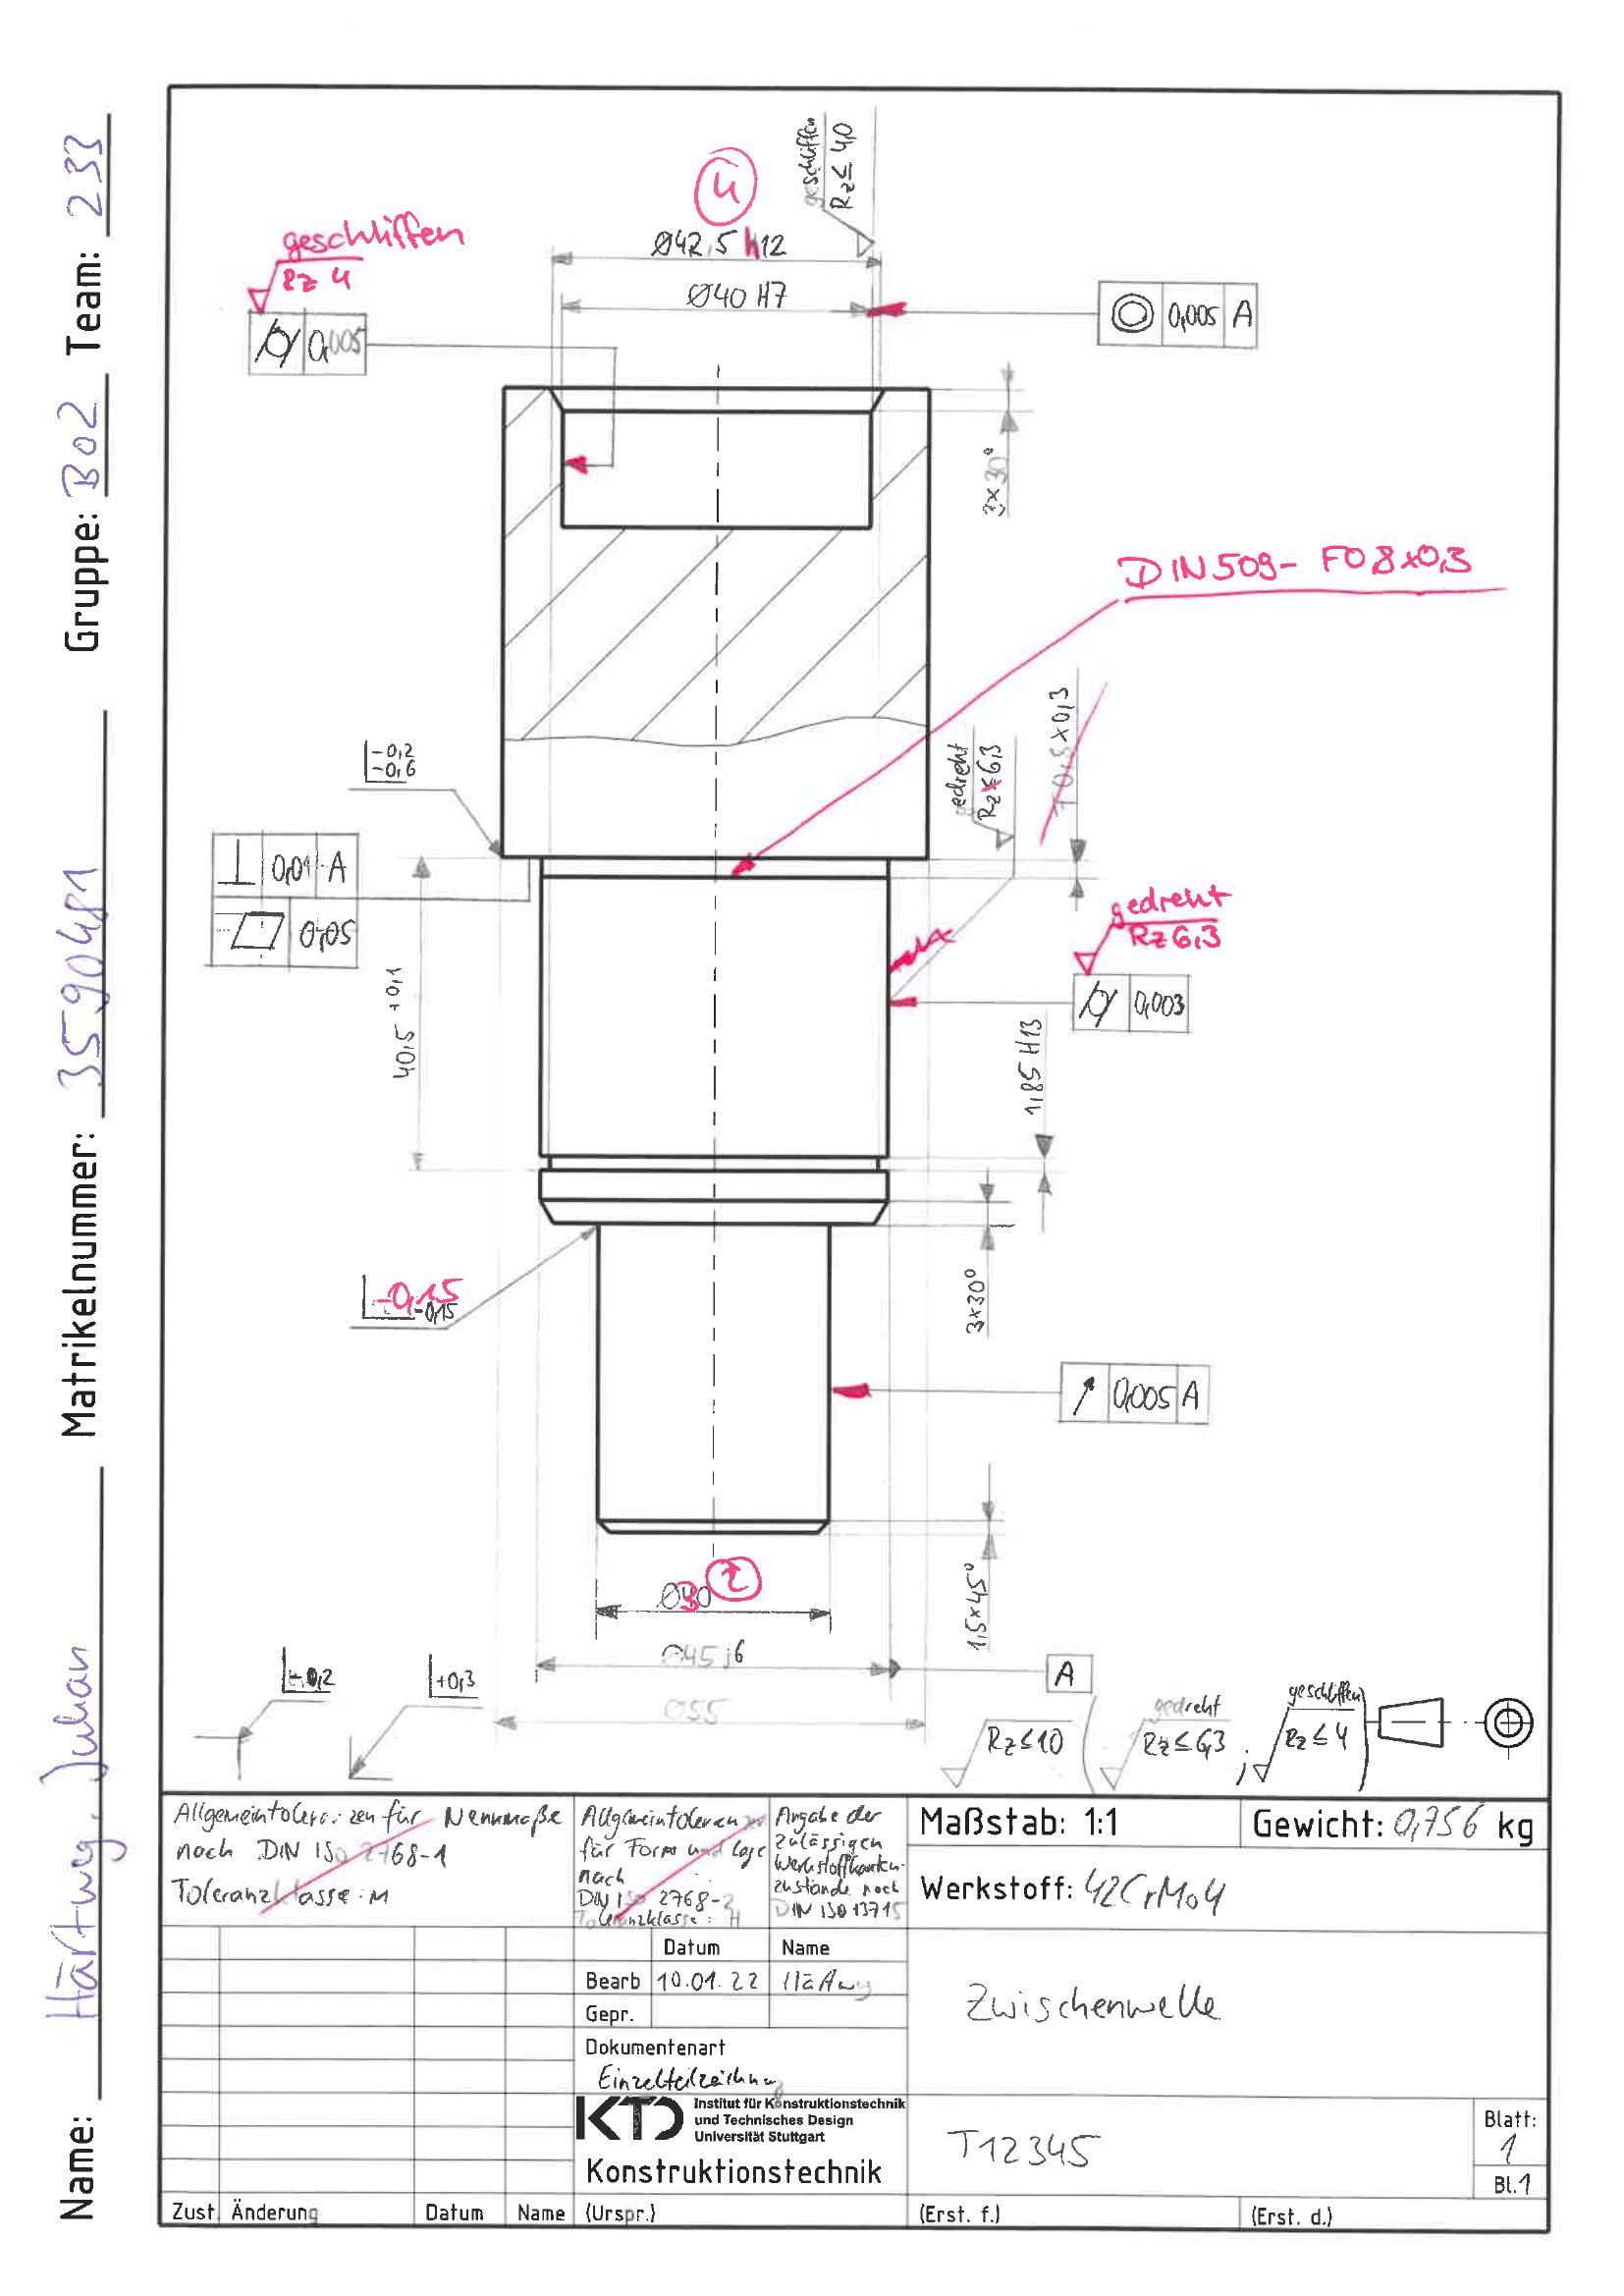 Name: Härtwig, Julian Matrikelnummer: 3590481 Gruppe: B02 Team: 233
geschliffen
Rz ≤ 4,0
4
geschliffen
Rz 4
⌀42,5 h12
⌀40 H7
0,005 A
0,005
3x30°
DIN 509 - F0,8x0,3
-0,2
-0,6
gedreht
Rz ≤ 6,3
0,8 x 0,3
0,01 A
0,05
gedreht
Rz 6,3
0,003
40,5 +0,1
1,85 H13
-0,15
-0,15
3x30°
0,005 A
2
⌀30
1,5x45°
⌀45 j6
A
⌀55
-0,2
+0,3
Rz ≤ 10
gedreht
Rz ≤ 6,3
;
geschliffen
Rz ≤ 4
Allgemeintoleranzen für Nennmaße
nach DIN ISO 2768-1
Toleranzklasse: M
Allgemeintoleranzen
für Form und Lage
nach
DIN ISO 2768-2
Toleranzklasse: H
Angabe der
zulässigen
Werkstoffkanten-
zustände nach
DIN ISO 13715
Maßstab: 1:1
Gewicht: 0,756 kg
Werkstoff: 42CrMo4
Datum Name
Bearb 10.01.22
Gepr.
Zwischenwelle
Dokumentenart
Einzelteilzeichnung
KTD
Institut für Konstruktionstechnik
und Technisches Design
Universität Stuttgart
Konstruktionstechnik
T12345
Blatt:
1
Bl.1
Zust. Änderung Datum Name (Urspr.) (Erst. f.) (Erst. d.)